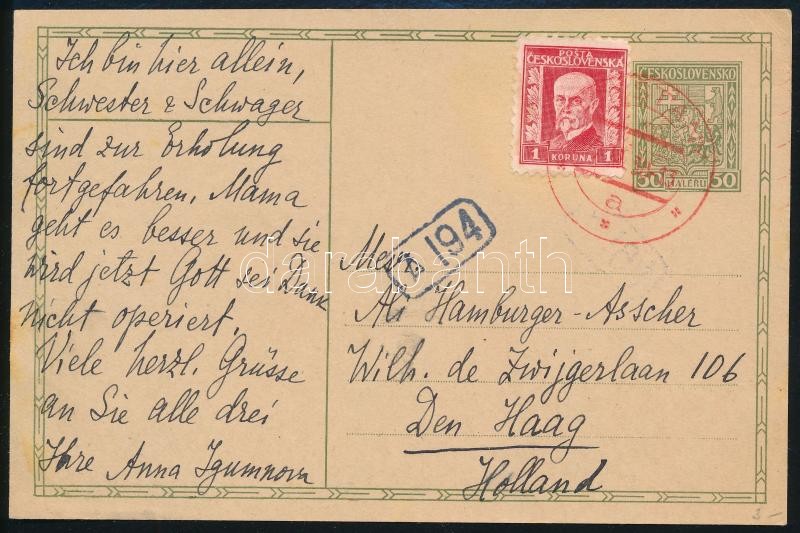 Ich bin hier allein,
Schwester & Schwager
sind zur Erholung
fortgefahren. Mama
geht es besser und sie
wird jetzt Gott sei Dank
nicht operiert.
Viele herzl. Grüsse
an Sie alle drei
Ihre Anna Igumnova
POŠTA
ČESKOSLOVENSKÁ
1 KORUNA 1
ČESKOSLOVENSKO
50 HALÉŘŮ 50
a
194
darabanth
Mevr.
A. Hamburger-Asscher
Wilh. de Zwijgerlaan 106
Den Haag
Holland
3-